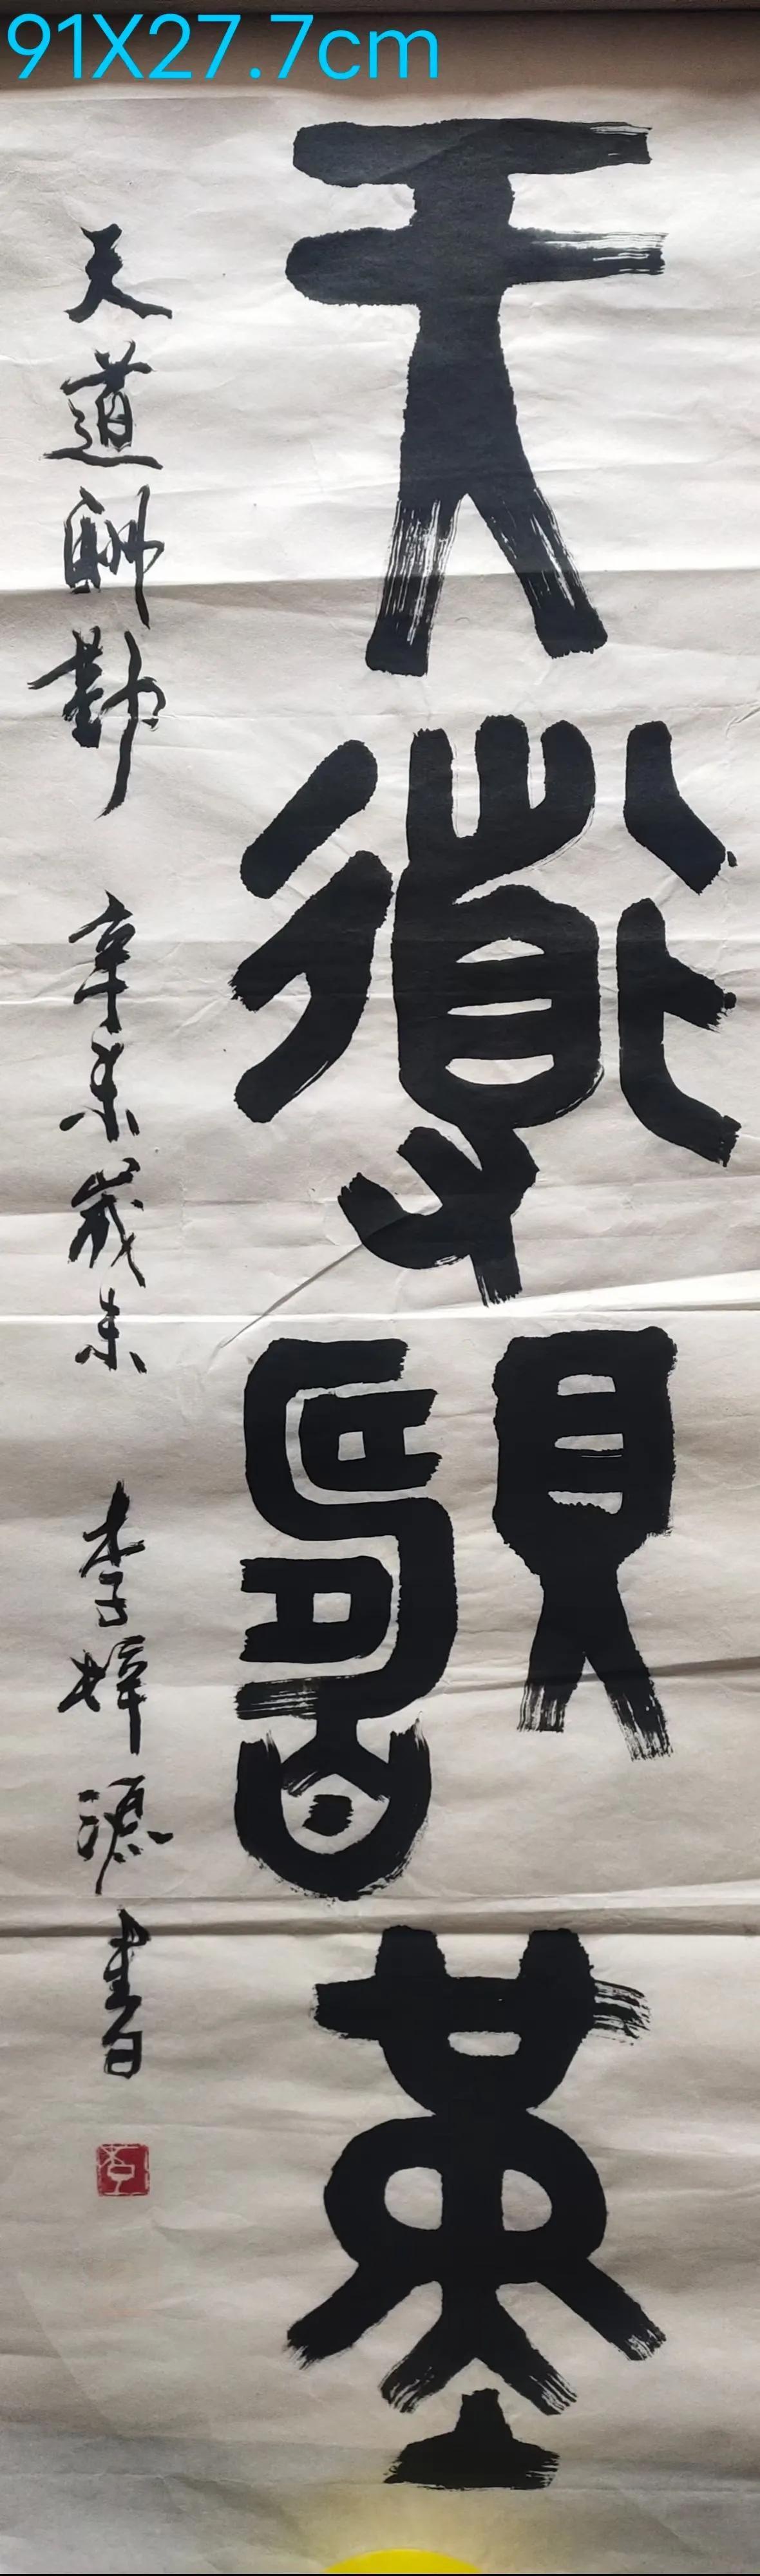 91X27.7cm
天道酬勤
天道酬勤 辛未歲末 李梓源書